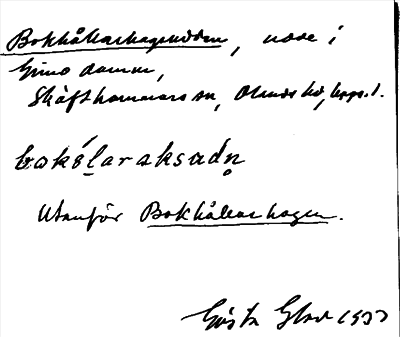 Bokhållarhagsudden, udde i
Gimo damm,
Skäfthammars sn, Olands hd, Upps. l.
bokǻlaraksadn̥
Utanför Bokhållarhagen.
Gösta